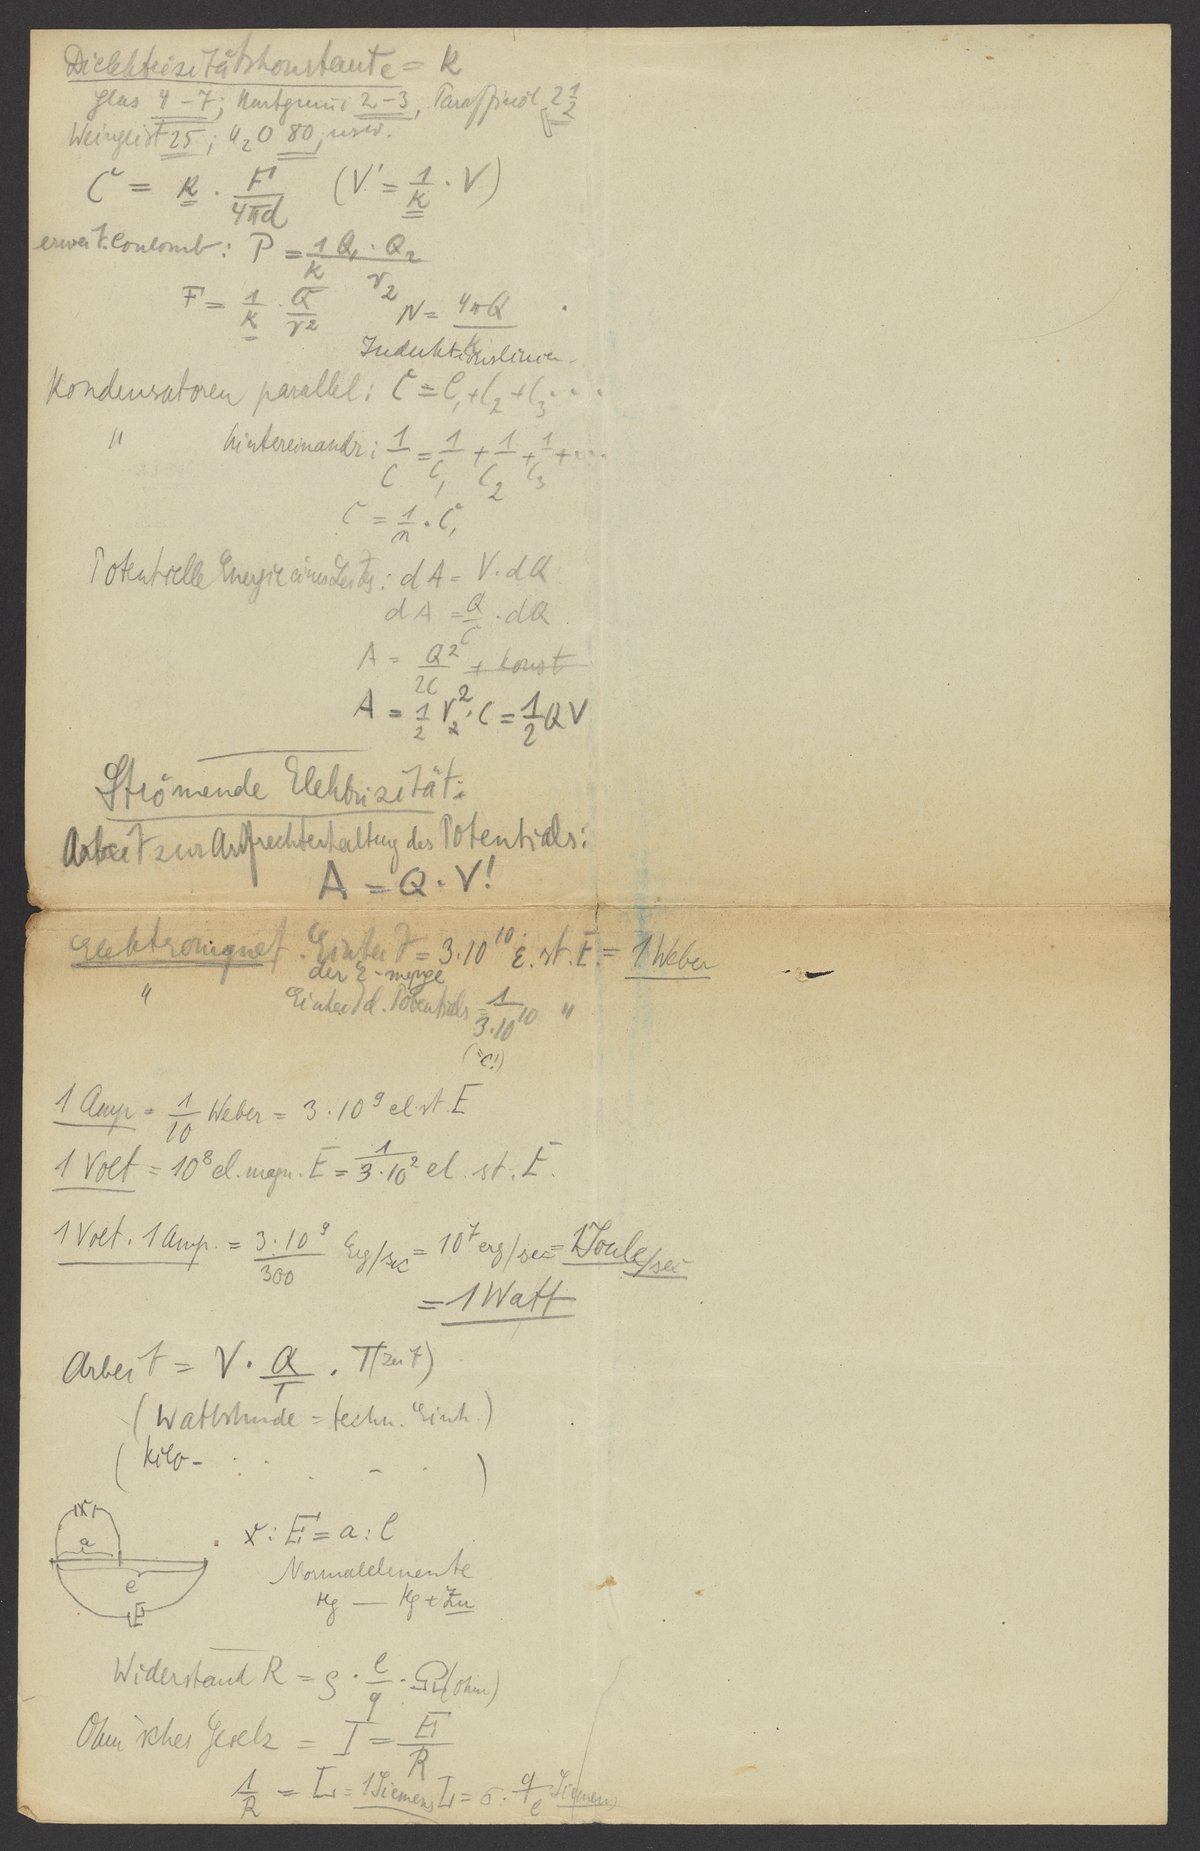 Dielektrizitätskonstante = K
Glas 4-7; Hartgummi 2-3, Paraffinöl 2 1/2
Weingeist 25; H2O 80, usw.
C = K · F/4πd (V' = 1/K · V)
erweit. Coulomb: P = 1/K Q1 · Q2/r2
F = 1/K · Q/r2 N = 4πQ/K
Induktionslinien
Kondensatoren parallel: C = C1 + C2 + C3 ...
" hintereinandr: 1/C = 1/C1 + 1/C2 + 1/C3 + ...
C = 1/n · C1
Potentielle Energie eines Leiters: dA = V · dQ
dA = Q/C · dQ
A = Q²/2C + Konst
A = 1/2 V² · C = 1/2 QV
Strömende Elektrizität:
Arbeit zur Aufrechterhaltung des Potentials:
A = Q · V!
Elektromagnet. Einheit = 3·10^10 E. st. E. = 1 Weber
der E-menge
" Einheit d. Potentials = 1/3·10^10 "
(=c!)
1 Amp = 1/10 Weber = 3·10^9 el. st. E
1 Volt = 10^8 el. magn. E = 1/3·10^2 el. st. E.
1 Volt · 1 Amp. = 3·10^9/300 Erg/sec = 10^7 erg/sec = 1 Joule/sec
= 1 Watt
Arbeit = V · Q/T · T (Zeit)
(Wattstunde = techn. Einh.)
(Kilo- )
x
a
e
E
x : E = a : l
Normalelemente
Hg — Hg + Zn
Widerstand R = ρ · l/q · Ω (Ohm)
Ohm'sches Gesetz = I = E/R
1/R = L = 1 Siemens L = σ · q/l Siemens